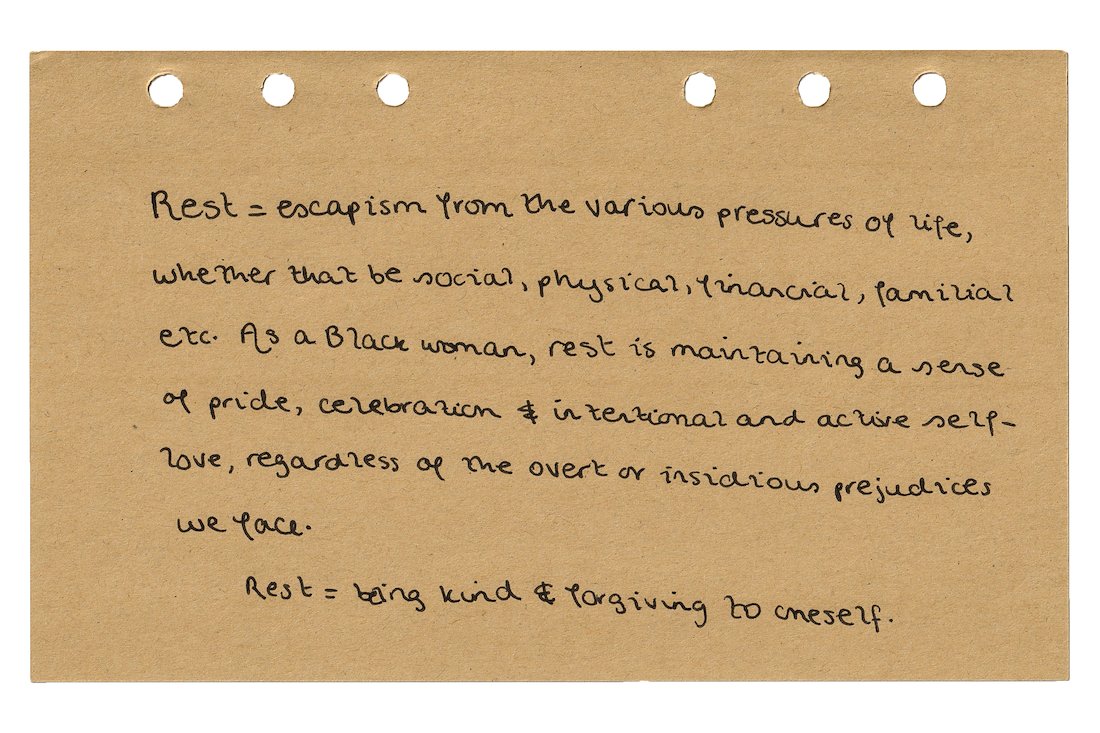 Rest = escapism from the various pressures of life,
whether that be social, physical, financial, familial
etc. As a Black woman, rest is maintaining a sense
of pride, celebration & intentional and active self-
love, regardless of the overt or insidious prejudices
we face.
Rest = being kind & forgiving to oneself.